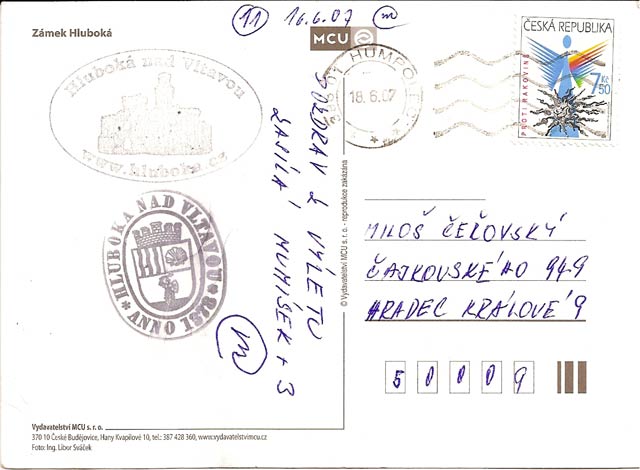 11 16.6.07 m
Zámek Hluboká
MCU
ČESKÁ REPUBLIKA
7 Kč
50
PROTI RAKOVINĚ
HUMPO
18.6.07
Hluboká nad Vltavou
www.hluboka.cz
HLUBOKA NAD VLTAVOU
ANNO 1378
POZDRAV Z VÝLETU
ZASÍLÁ MUMÍŠEK + 3
m
© Vydavatelství MCU s. r. o. - reprodukce zakázána
MILOŠ ČEŘOVSKÝ
ČAJKOVSKÉHO 949
HRADEC KRÁLOVÉ 9
5 0 0 0 9
Vydavatelství MCU s. r. o.
370 10 České Budějovice, Hany Kvapilové 10, tel.: 387 428 360, www.vydavatelstvimcu.cz
Foto: Ing. Libor Sváček